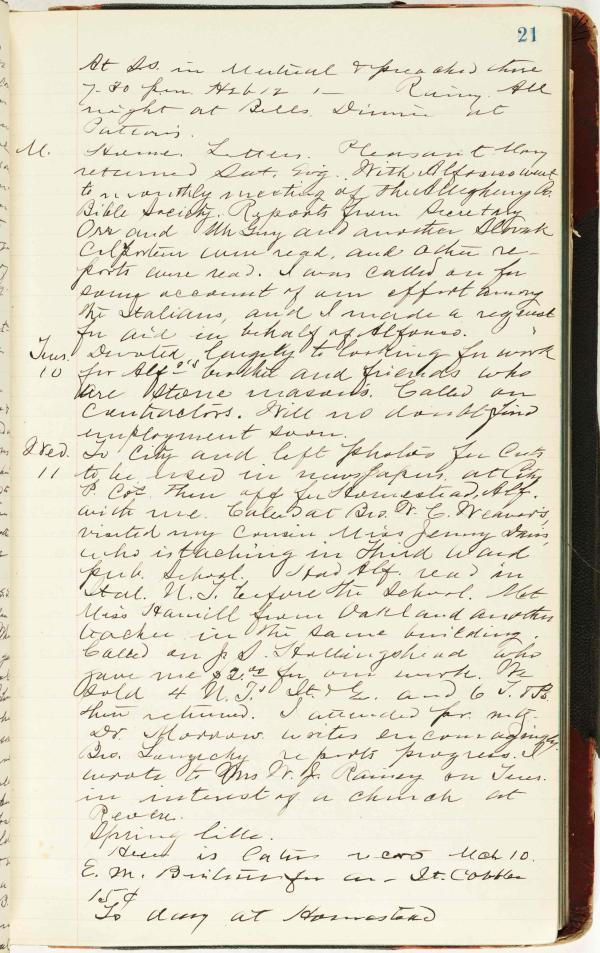 21
At So. in Mutual & preached there
7-30 p.m. Heb 12 1 - Rainy All
night at Bells. Dinner at
M. Home. Letters. Pleasant Mary
returned Sat. Evg. With Alfonso went
to monthly meeting of the Allegheny Co.
Bible Society. Reports from Secretary
Orr and and another Slovak
Colporteur were read, and other re-
ports were read. I was called on for
some account of our effort among
the Italians, and I made a request
for aid in behalf of Alfonso.
Tues. Devoted largely to looking for work
10 for Alf's brother and friends who
are stone masons. Called on
Contractors. Will no doubt find
employment soon.
Wed. To City and left photos for Cuts
11 to be used in newspapers, at City
P. Co. Then off for Homestead, Alf.
with me. Called at Bro. W. C. Weaver's,
visited my cousin Miss Jenny Davis,
who is teaching in Third Ward
pub. School. Had Alf. read in
Ital. N.T. before the School. Met
Miss Hamill from Oakland another
teacher in the same building.
Called on J. S. Hollingshead who
gave me $2.00 for our work. We
Sold 4 N.T.s It. & E. and 6 T. & B.
then returned. I attended pr. mtg.
Dr. Morrow writes encouragingly
Bro. reports progress. I
wrote to Mrs W. J. Rainey on Tues.
in interest of a church at
Spring like.
Here is Mch 10.
E. M. for an - It.
15¢
To day at Homestead